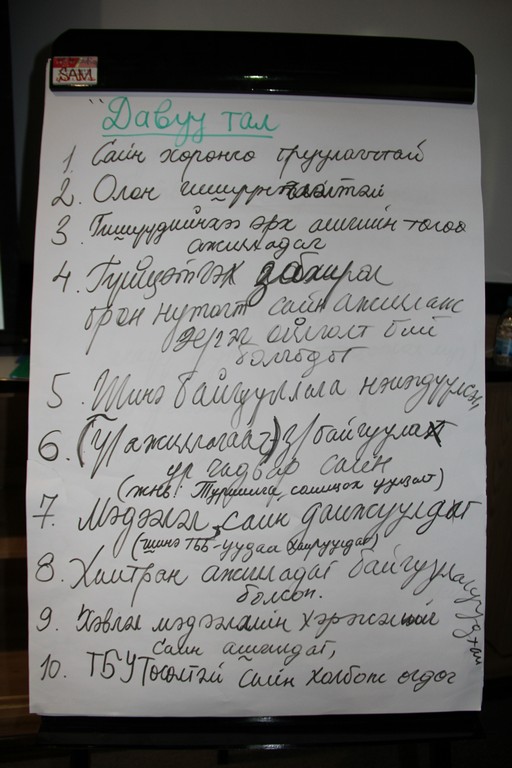 SAM
"Давуу тал
1. Сайн хөрөнгө оруулагчтай
2. Олон гишүүнтэй
3. Гишүүдийнхээ эрх ашгийн төлөө
ажилладаг
4. Гүйцэтгэх захирал
орон нутагт сайн ажиллаж
эергэ ойлголт бий
болгодог
5. Шинэ байгууллага нэгдүүлсэн,
6. (Үйл ажиллагааг) байгуулах
ур чадвар сайн
(жнь: Туршлага солилцох уулзалт)
7. Мэдээлэл сайн дамжуулдаг
(шинэ ТББ-уудаа хамруулдаг)
8. Хамтран ажилладаг байгууллагуудтай
болсон.
9. Хэвлэл мэдээллийн хэрэгслийг
сайн ашигладаг,
10. ТБУТөсөлтэй сайн холбож өгдөг